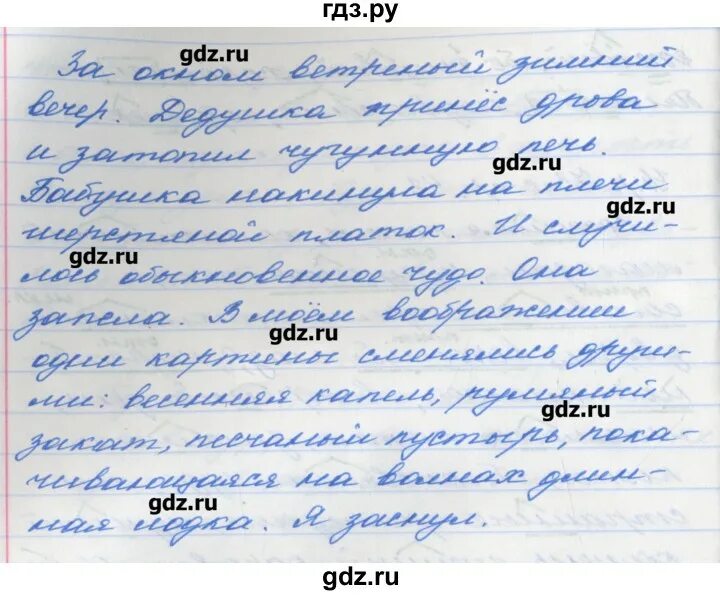 гдз.ру
За окном ветреный зимний
gdz.ru
вечер. Дедушка принёс дрова
и затопил чугунную печь.
gdz.ru
Бабушка накинула на плечи
gdz.ru
шерстяной платок. И случи-
gdz.ru
лось обыкновенное чудо. Она
запела. В моём воображении
gdz.ru
одни картины сменялись други-
ми: весенняя капель, румяный
gdz.ru
закат, песчаный пустырь, пока-
чивающаяся на волнах длин-
gdz.ru
ная лодка. Я заснул.
gdz.ru